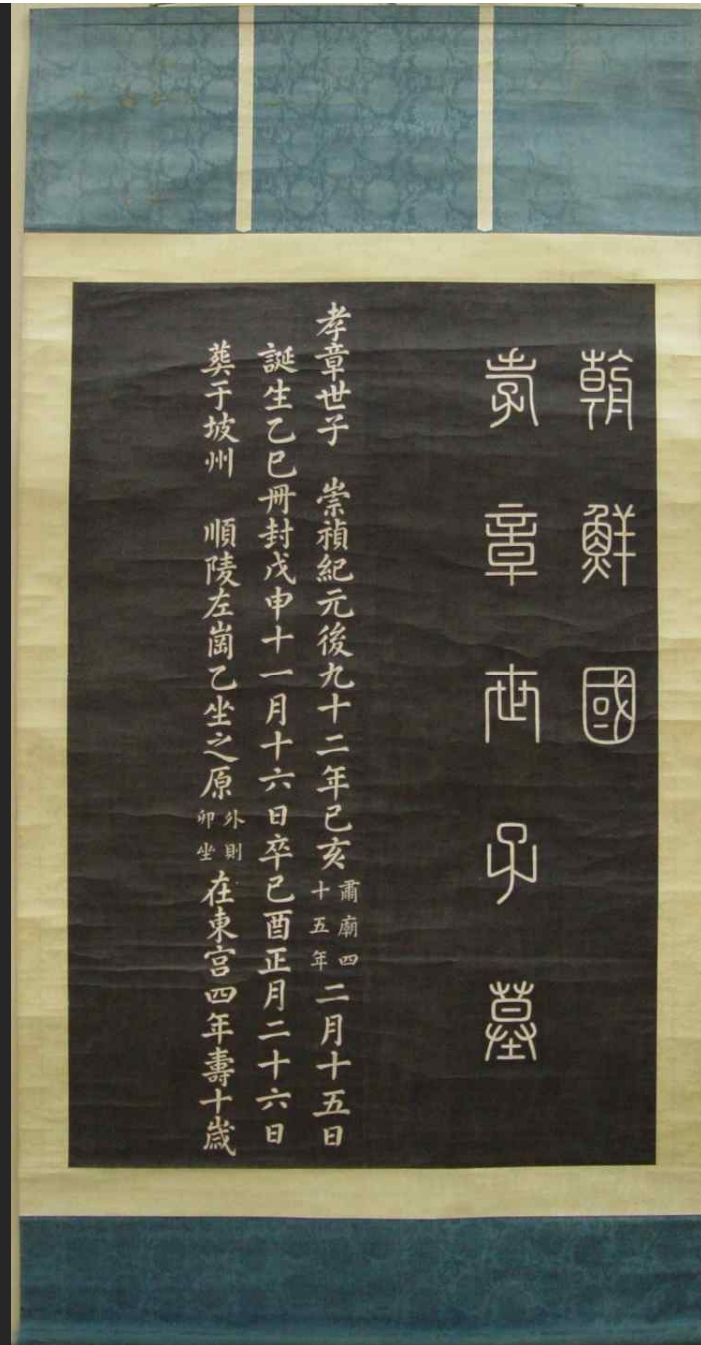 朝鮮國
孝章世子墓
孝章世子 崇禎紀元後九十二年己亥肅廟四十五年二月十五日
誕生乙巳冊封戊申十一月十六日卒己酉正月二十六日
葬于坡州 順陵左崗乙坐之原外則卯坐在東宮四年壽十歲